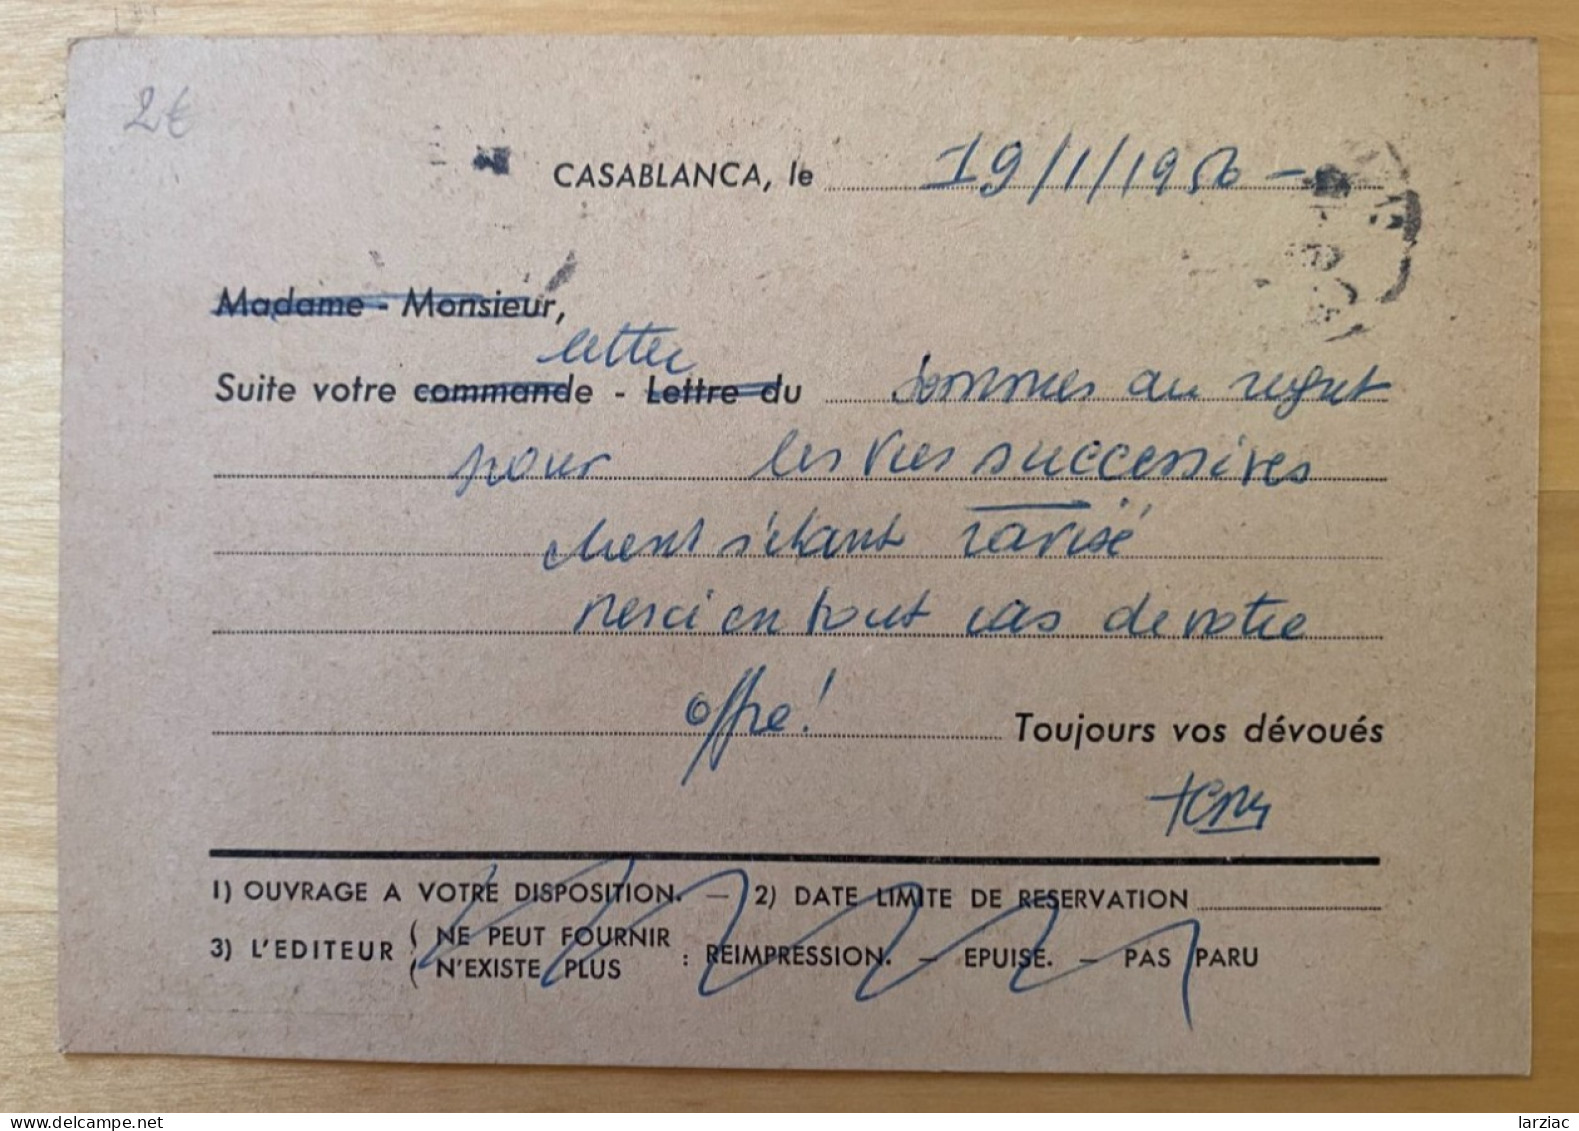 2€
CASABLANCA, le 19/1/1956 -
Madame - Monsieur,
letter
Suite votre commande - Lettre du sommes au regret
pour les vies successives
client s'étant ravisé
merci en tout cas de votre
offre! Toujours vos dévoués
1) OUVRAGE A VOTRE DISPOSITION. — 2) DATE LIMITE DE RESERVATION
3) L'EDITEUR ( NE PEUT FOURNIR
( N'EXISTE PLUS : REIMPRESSION. — EPUISE. — PAS PARU
delcampe.net
larziac